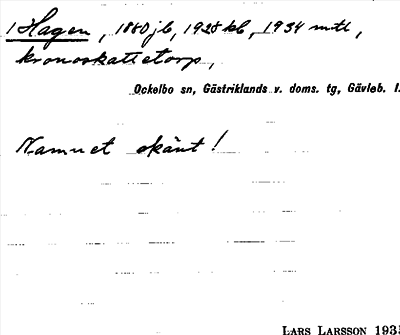 1 Hagen, 1880 jb, 1928 kb, 1934 mtl,
kronoskattetorp,
Ockelbo sn, Gästriklands v. doms. tg, Gävleb. l.
Namnet okänt!
LARS LARSSON 1935